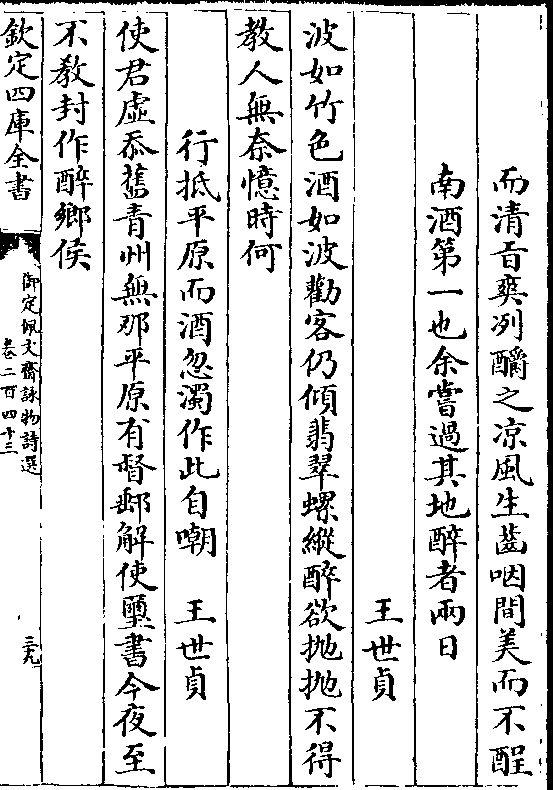 而清旨爽冽酹之凉風生齒咽間美而不酲
南酒第一也余嘗過其地醉者兩日
王世貞
波如竹色酒如波勸客仍傾翡翠螺縱醉欲抛抛不得
教人無奈憶時何
行抵平原而酒忽濁作此自嘲　王世貞
使君虚忝舊青州無那平原有督郵解使璽書今夜至
不教封作醉鄉侯
欽定四庫全書
御定佩文齋詠物詩選
卷二百四十三
三九